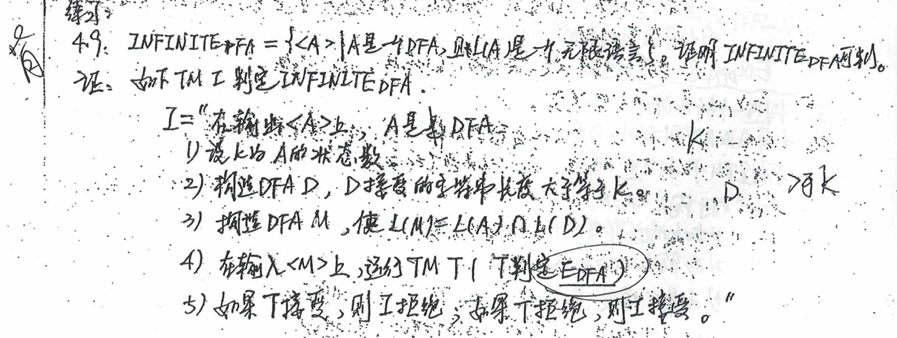 练习:
4.9: INFINITE_DFA = {<A> | A是一个DFA, 且L(A)是一个无限语言}。证明INFINITE_DFA可判。
证: 如下TM I 判定INFINITE_DFA.
I="在输出<A>上, A是 DFA
1) 设k为A的状态数
2) 构造DFA D, D接受的全符串长度大于等于k。
3) 构造DFA M, 使L(M)=L(A)∩L(D)。
4) 在输入<M>上, 运行TM T( T判定E_DFA)
5) 如果T接受, 则I拒绝; 如果T拒绝, 则I接受。"
K
D >于k